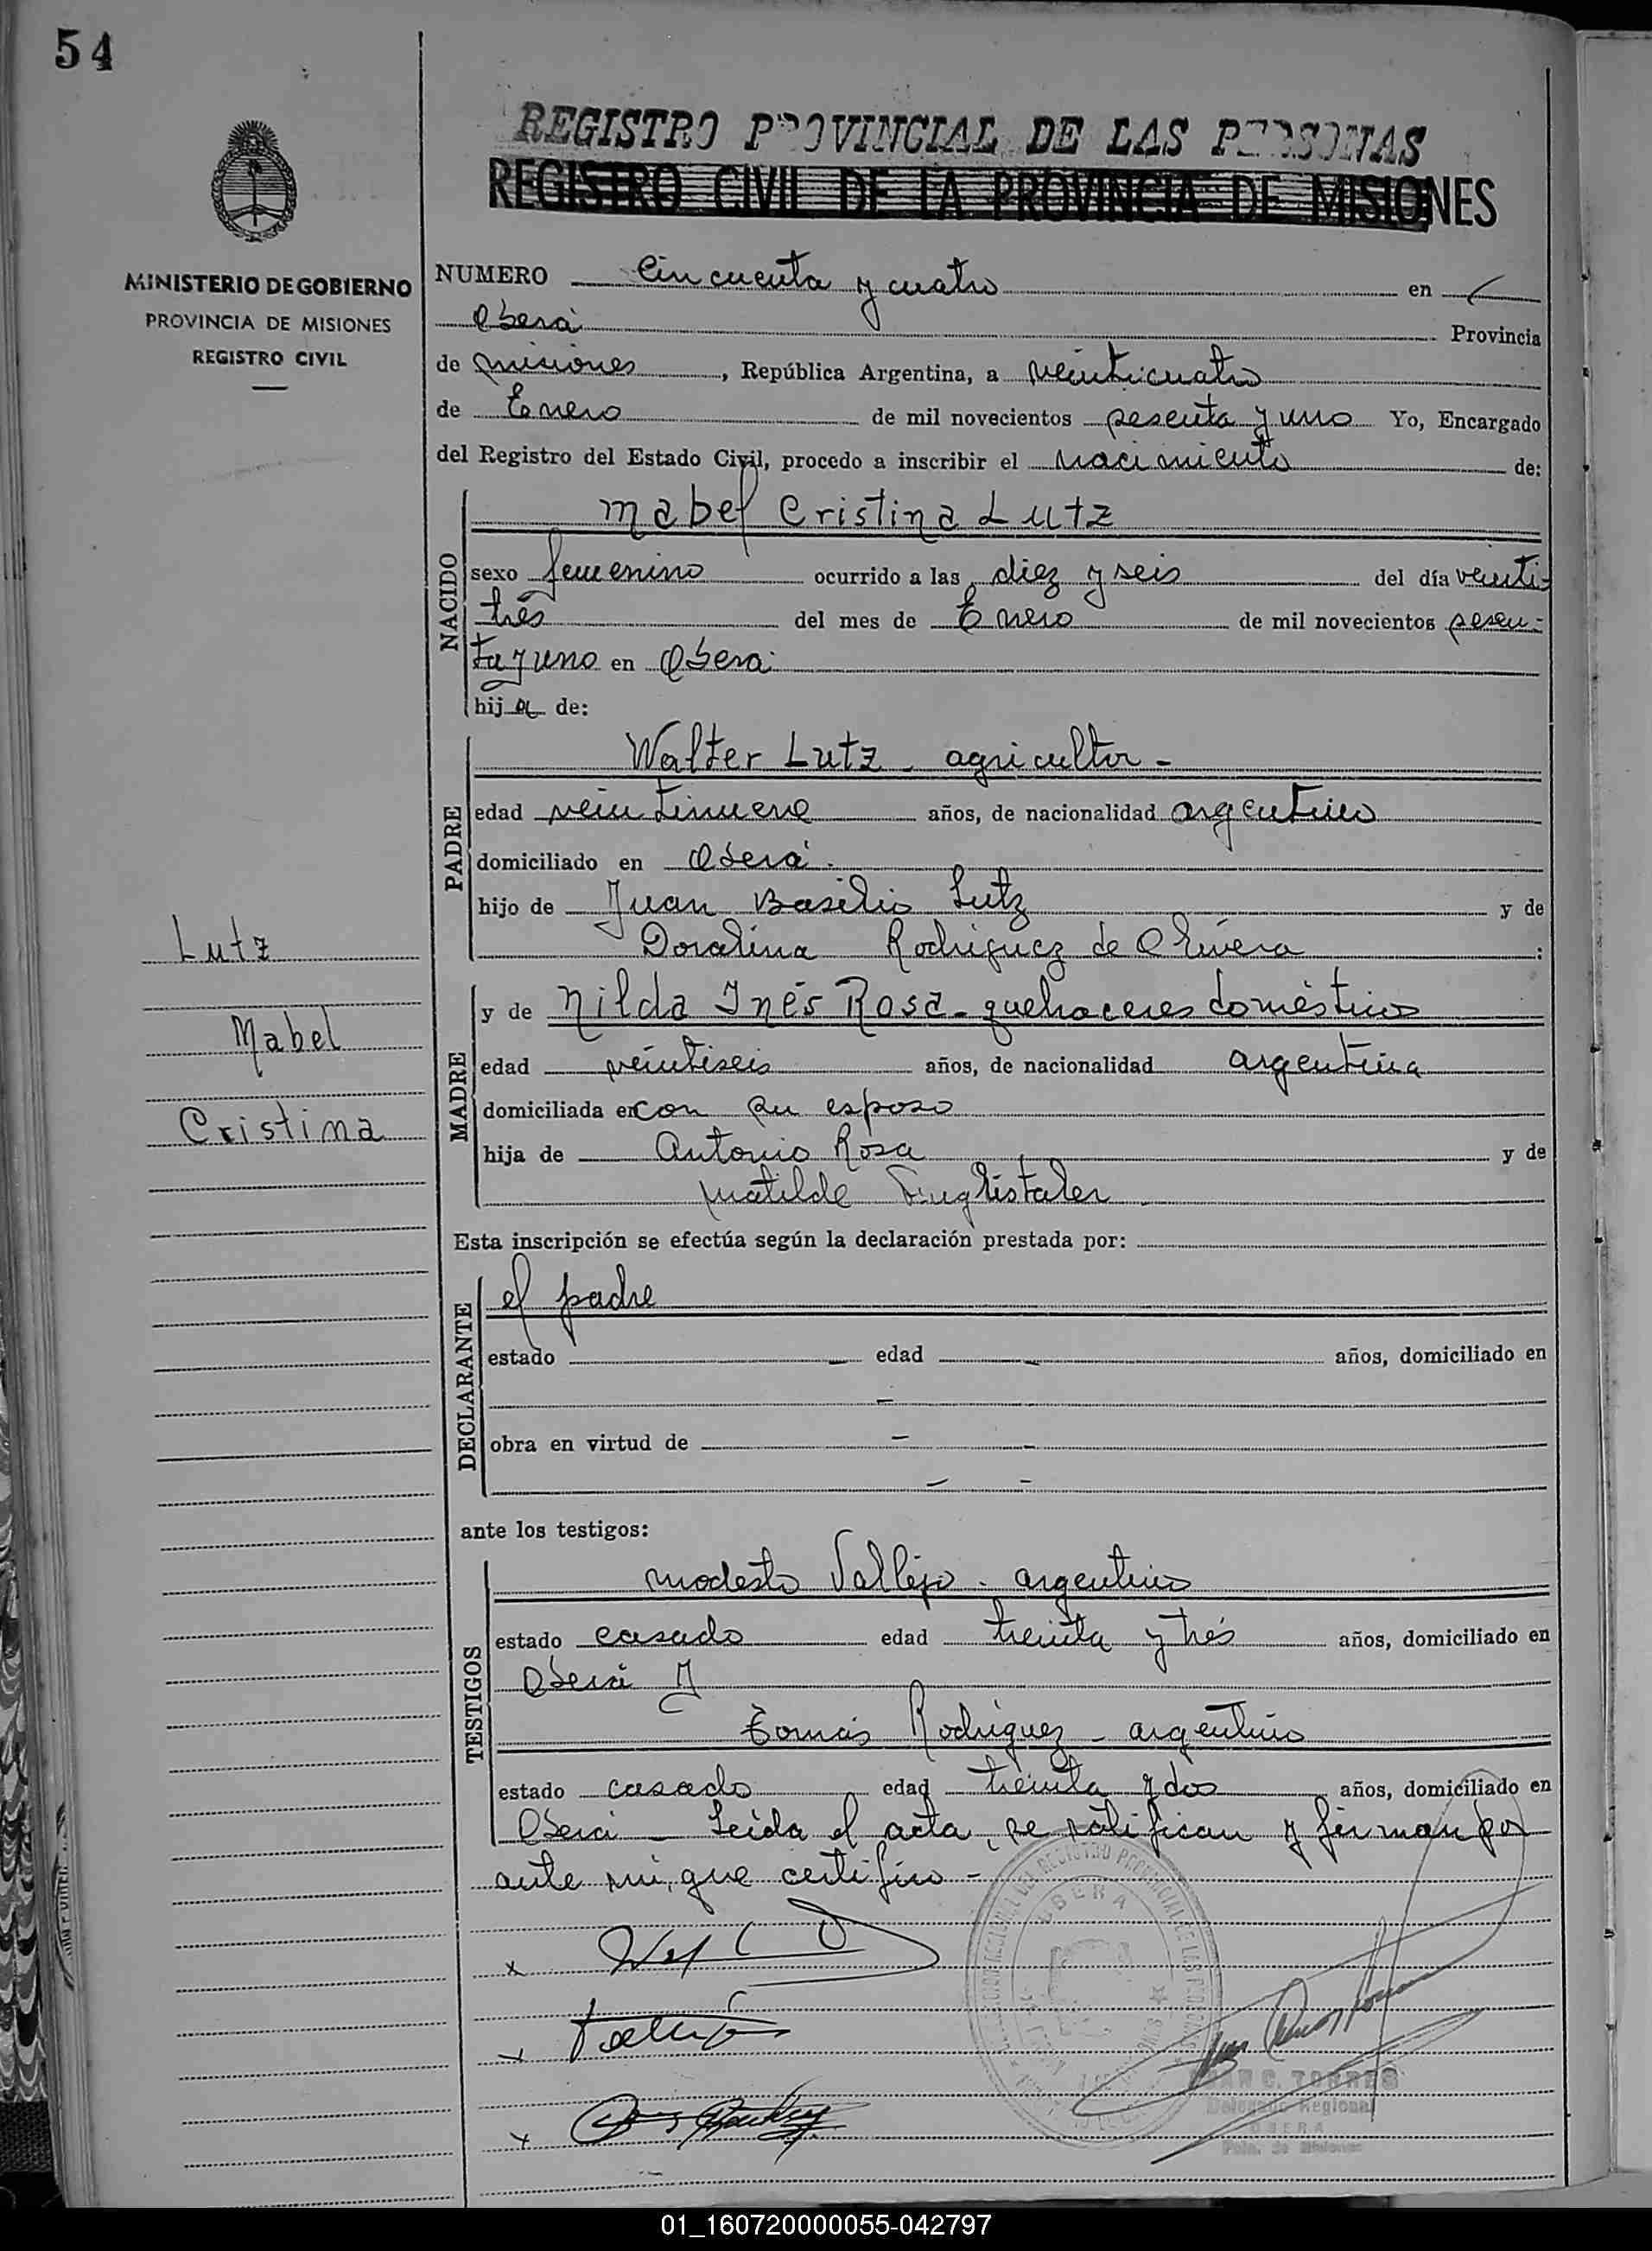 54
REGISTRO PROVINCIAL DE LAS PERSONAS
REGISTRO CIVIL DE LA PROVINCIA DE MISIONES
MINISTERIO DE GOBIERNO
PROVINCIA DE MISIONES
REGISTRO CIVIL
NUMERO Cincuenta y cuatro en
Oberá Provincia
de Misiones, República Argentina, a veinticuatro
de Enero de mil novecientos sesenta y uno Yo, Encargado
del Registro del Estado Civil, procedo a inscribir el nacimiento de:
NACIDO
Mabel Cristina Lutz
sexo femenino ocurrido a las diez y seis del día veinti-
trés del mes de Enero de mil novecientos sesen-
ta y uno en Oberá
hija de:
PADRE
Walter Lutz - agricultor -
edad veintinueve años, de nacionalidad argentino
domiciliado en Oberá.
hijo de Juan Basilio Lutz y de
Doralina Rodriguez de Olivera :
MADRE
y de Nilda Inés Rosa - quehaceres domésticos
edad veintiseis años, de nacionalidad argentina
domiciliada en con su esposo
hija de Antonio Rosa y de
Matilde
Lutz
Mabel
Cristina
Esta inscripción se efectúa según la declaración prestada por:
DECLARANTE
el padre
estado - edad - años, domiciliado en
-
obra en virtud de - -
- -
ante los testigos:
TESTIGOS
Modesto Vallejo - argentino
estado casado edad treinta y trés años, domiciliado en
Oberá y
Tomás Rodriguez - argentino
estado casado edad treinta y dos años, domiciliado en
Oberá - Leída el acta, se ratifican y firman por
ante mi, que certifico -
x
x
x
OBERA
JUAN C. TORRES
Delegado Regional
OBERA
Pcia. de Misiones
01_160720000055-042797